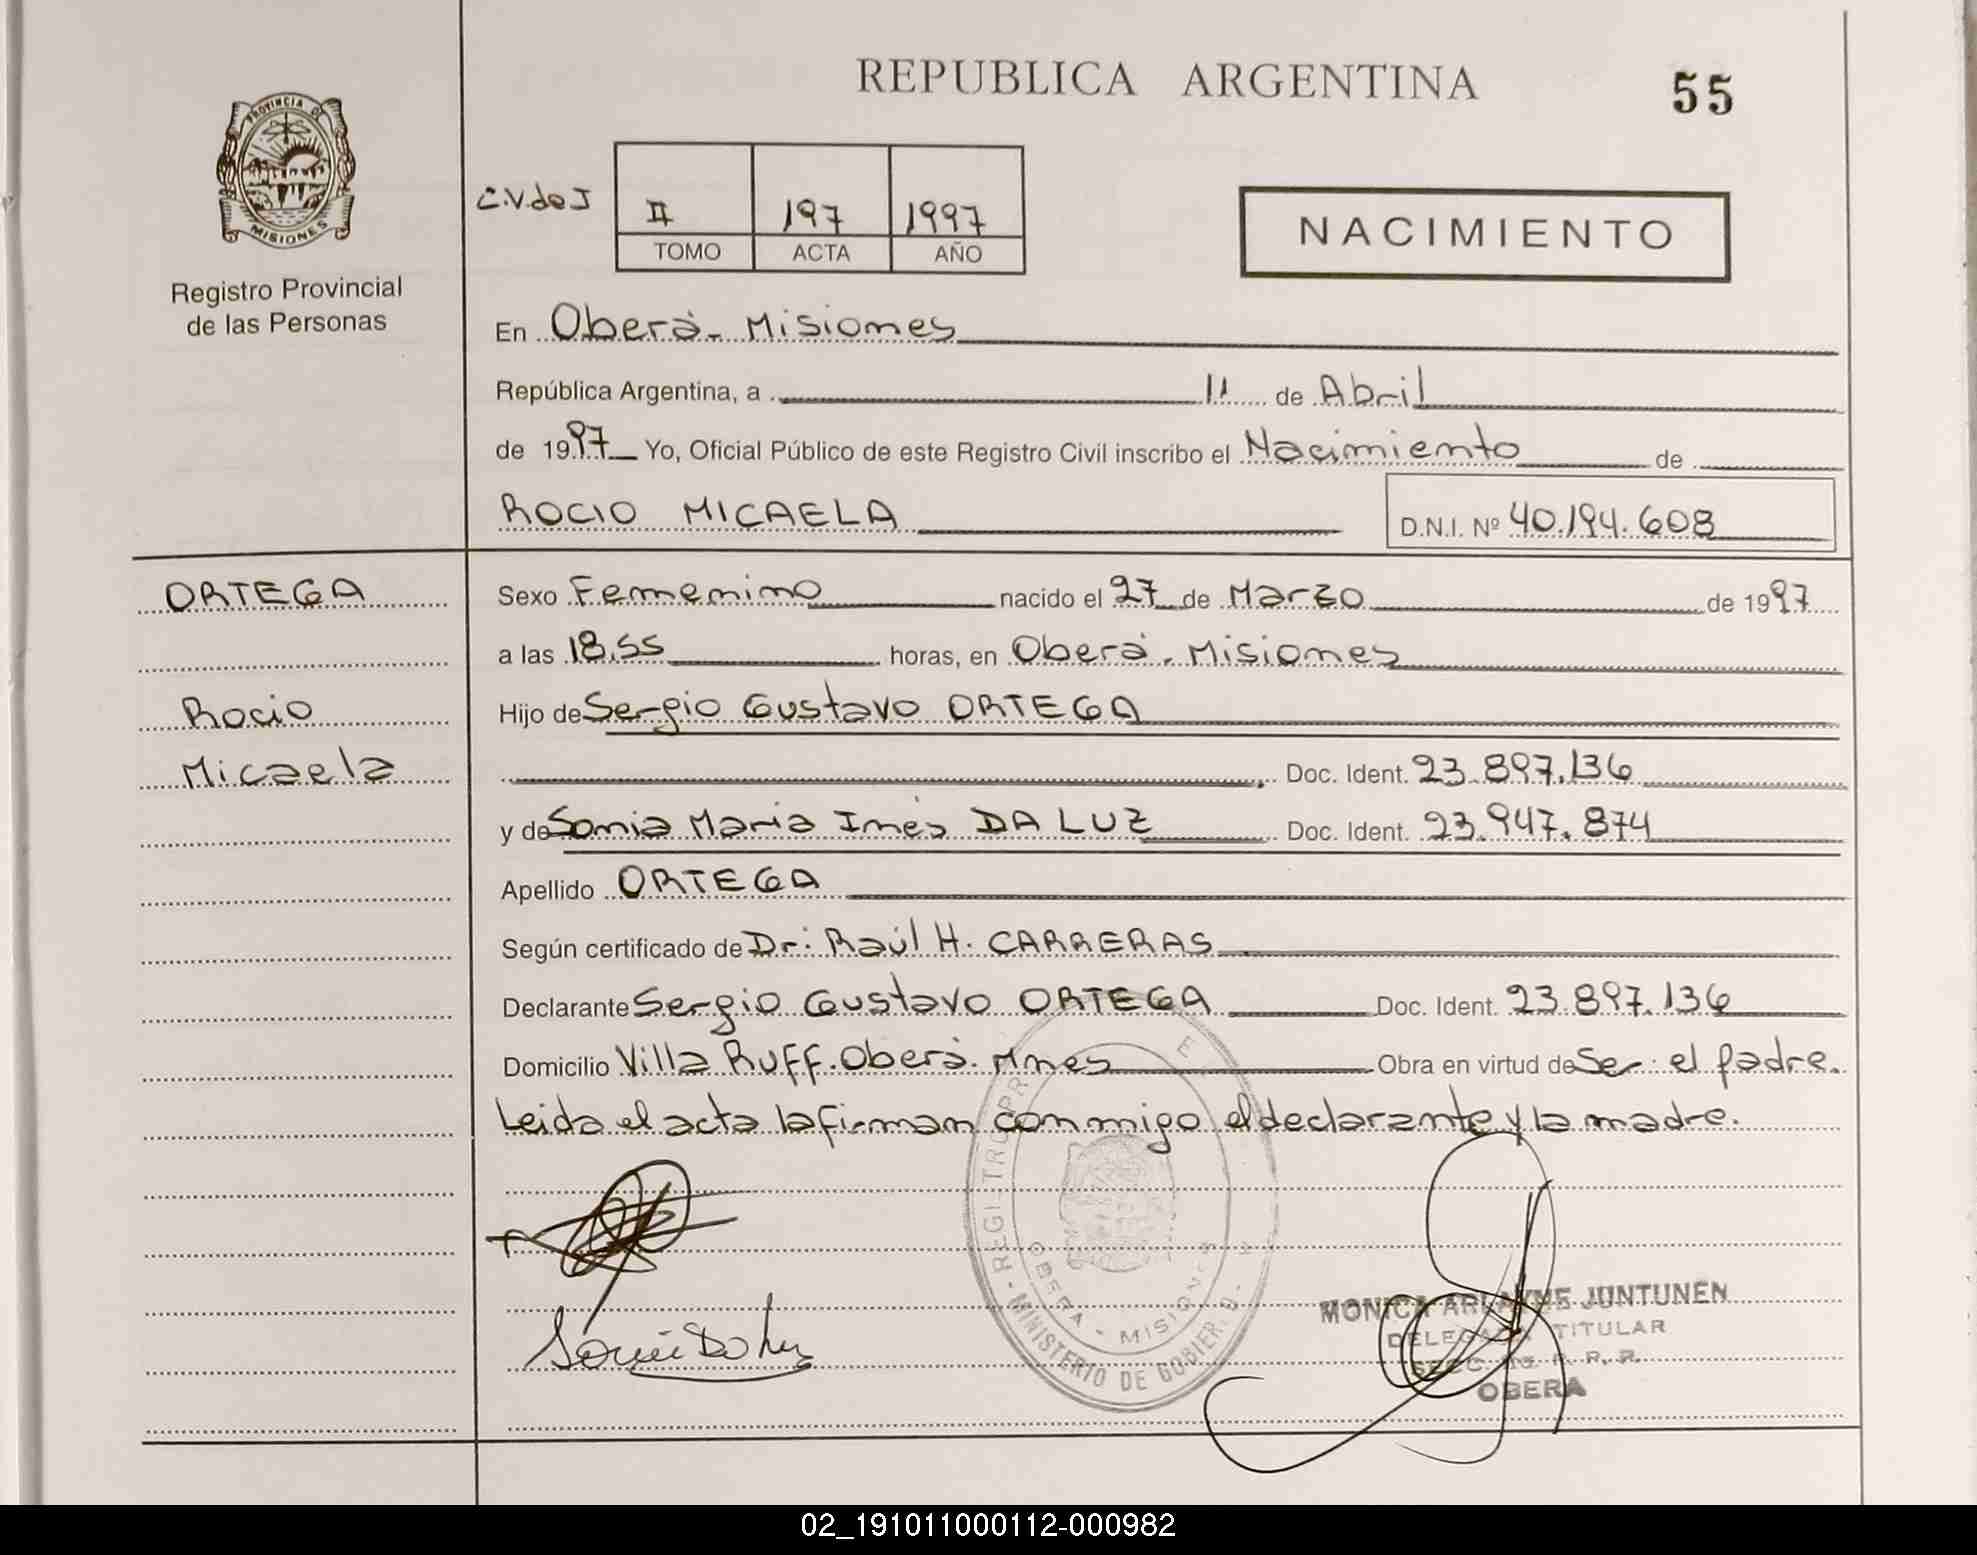 REPUBLICA ARGENTINA
55
PROVINCIA DE
MISIONES
Registro Provincial
de las Personas
C.V.de J
II 197 1997
TOMO ACTA AÑO
NACIMIENTO
En Oberá - Misiones
República Argentina, a 11 de Abril
de 1997 Yo, Oficial Público de este Registro Civil inscribo el Nacimiento de
ROCIO MICAELA D.N.I. Nº 40.194.608
ORTEGA
Rocio
Micaela
Sexo Femenino nacido el 27 de Marzo de 1997
a las 18,55 horas, en Oberá - Misiones
Hijo de Sergio Gustavo ORTEGA
Doc. Ident. 23.897.136
y de Sonia Maria Inés DA LUZ Doc. Ident. 23.947.874
Apellido ORTEGA
Según certificado de Dr: Raúl H. CARRERAS
Declarante Sergio Gustavo ORTEGA Doc. Ident. 23.897.136
Domicilio Villa Ruff. Oberá. Mnes Obra en virtud de Ser: el padre.
Leida el acta la firman conmigo el declarante y la madre.
REGISTRO
OBERA - MISIONES
MINISTERIO DE GOBIER
MONICA ARLAYNE JUNTUNEN
DELEGADA TITULAR
SECC. R. P. P.
OBERA
02_191011000112-000982